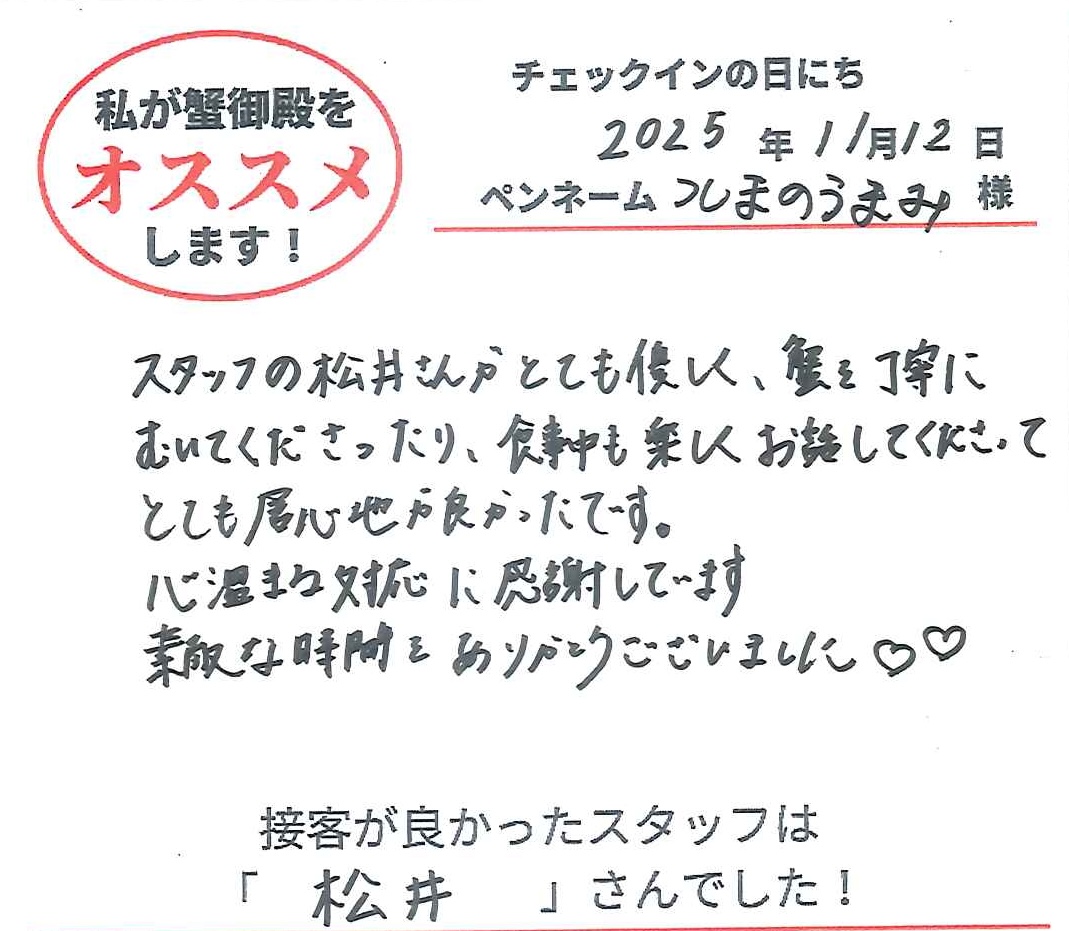 私が蟹御殿を
オススメ
します!
チェックインの日にち
2025年11月12日
ペンネーム つしまのうまみ 様
スタッフの松井さんがとても優しく、蟹を丁寧に
むいてくださったり、食事中も楽しくお話してくださって
とても居心地が良かったです。
心温まる対応に感謝しています
素敵な時間をありがとうございました♡♡
接客が良かったスタッフは
「 松井 」さんでした!